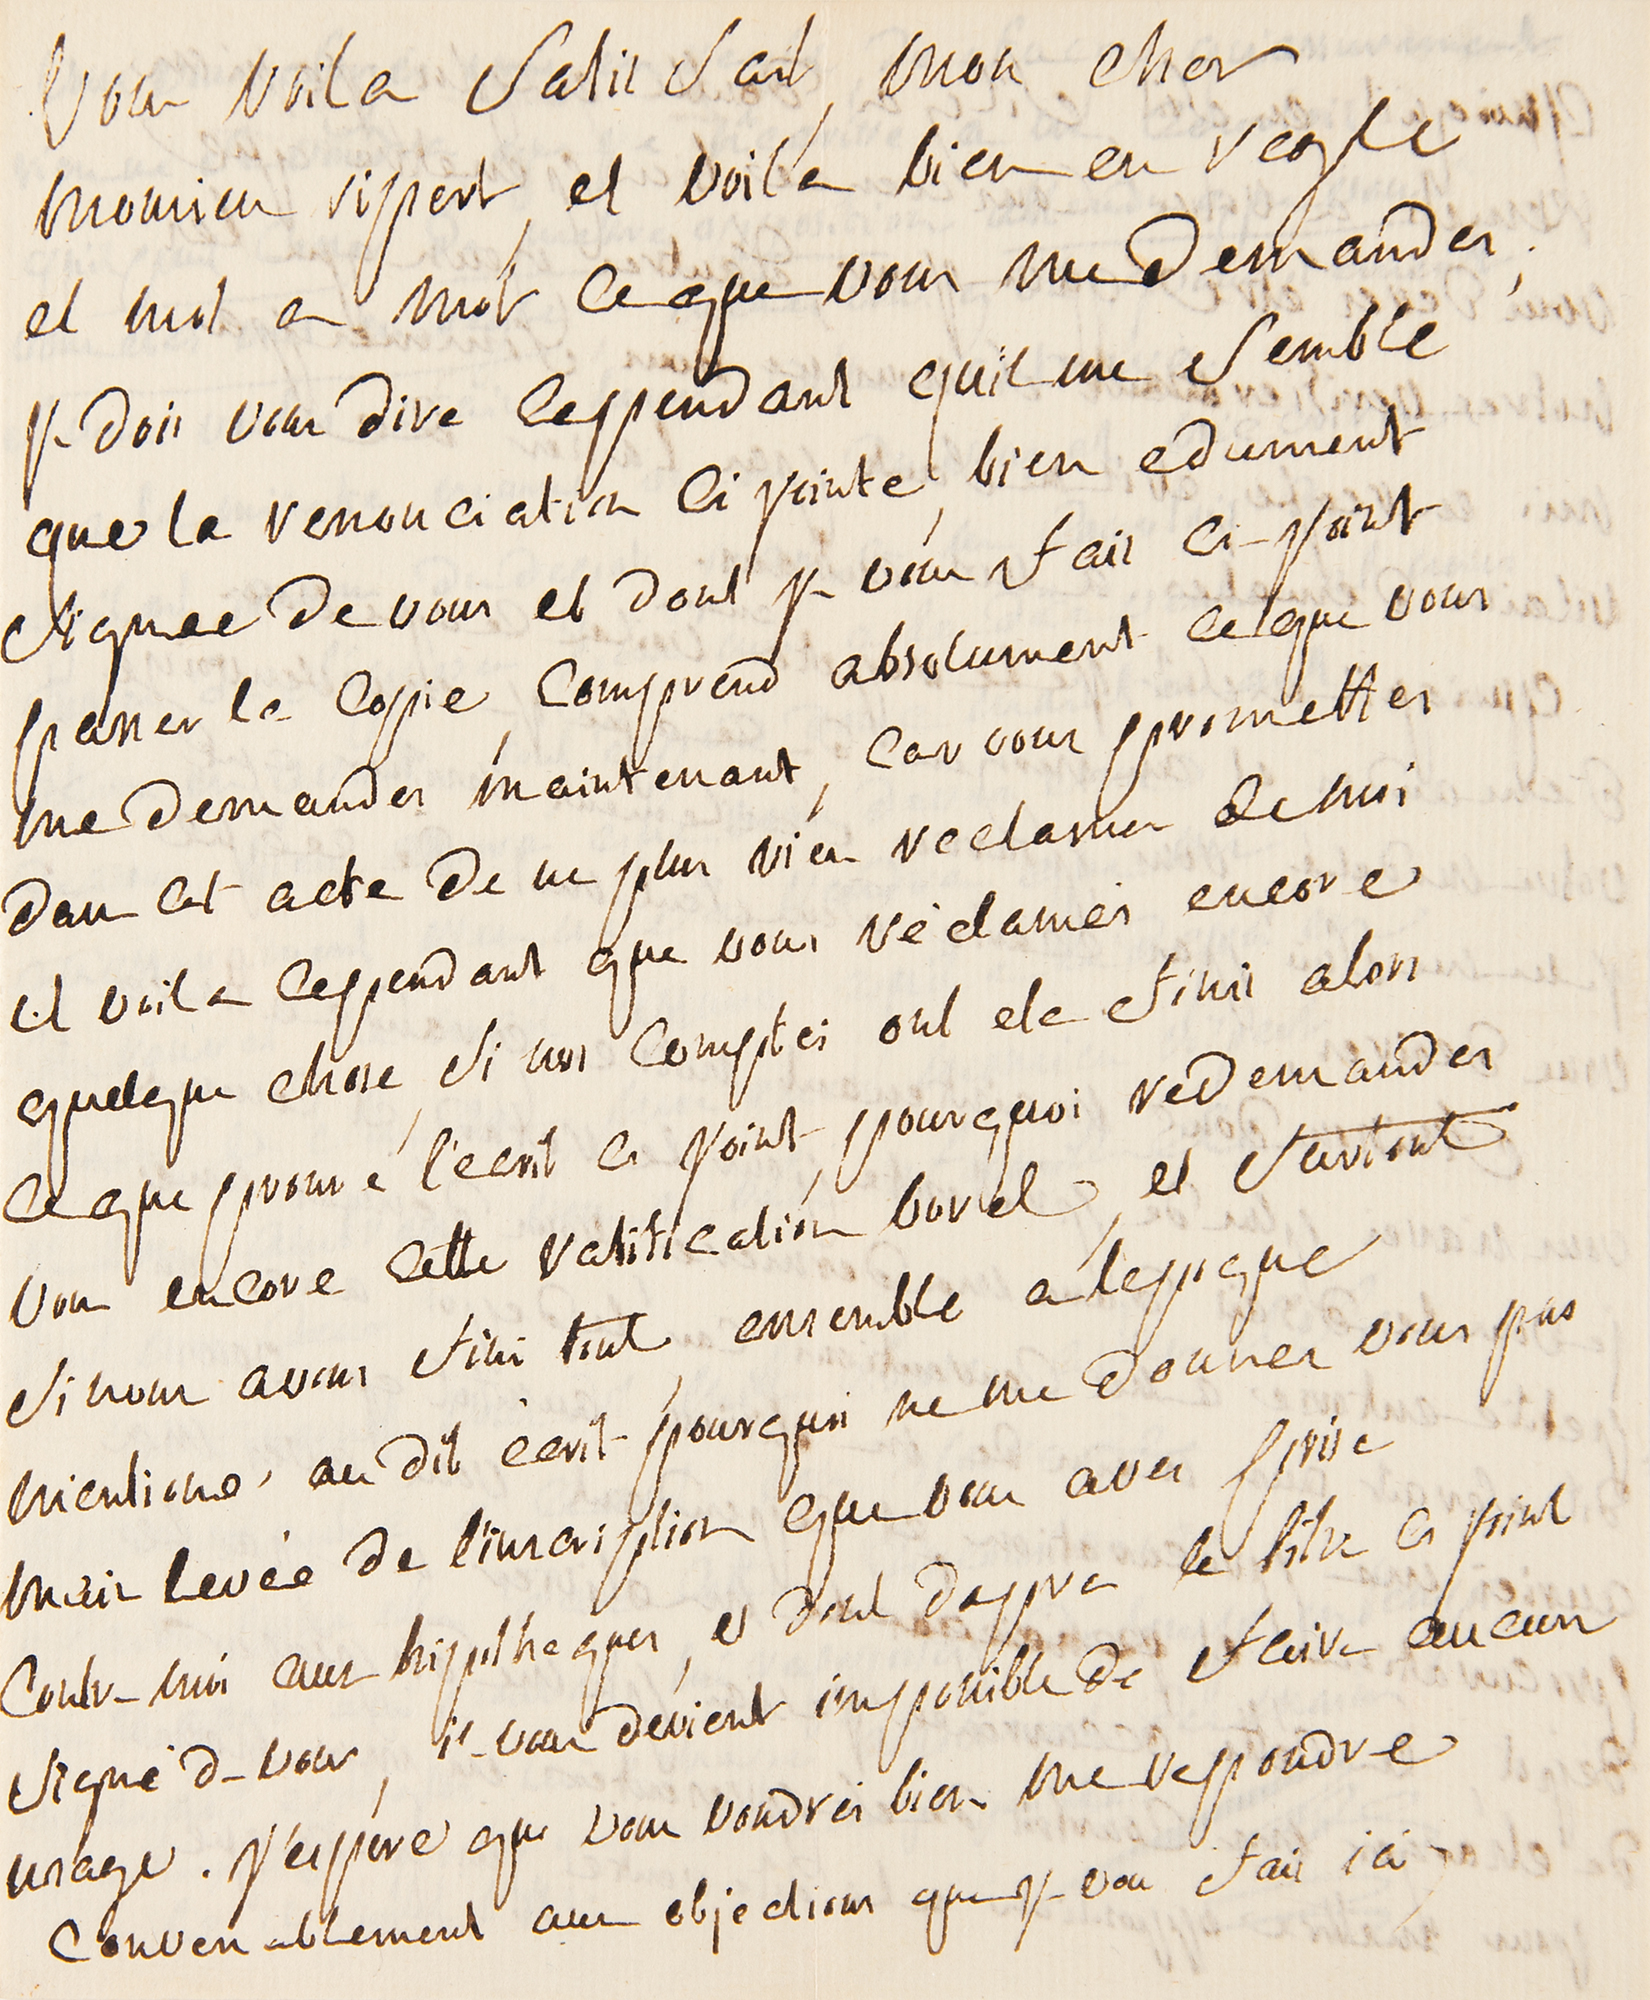 Vous voila satisfait, mon cher
monsieur ripert, et voila bien en regle
et mot a mot ceque vous me demandes;
je dois vous dire cependant quil me semble
que la renonciation ci jointe, bien edument
signee de vous et dont je vous fais ci-joint
passer la copie, comprend absolument ceque vous
me demandes maintenant, car vous promettes
dans cet acte de ne plus rien reclamer de moi
et voila cependant que vous réclamés encore
quelque chose, si nos comptes ont ete finis alors
ceque prouve l'ecrit ci joint, pourquoi redemander
vous encore cette ratification borel, et surtout
si nous avons fini tout ensemble, a lepoque
mentionné au dit écrit pourquoi ne me donnes vous pas
main levée de l'inscription que vous aves prise
contre moi aux hipotheques, et dont dapres le titre ci joint
signé de vous, il vous devient impossible de faire aucun
usage. J'espère que vous voudrés bien me repondre
convenablement aux objections que je vous fais ici,